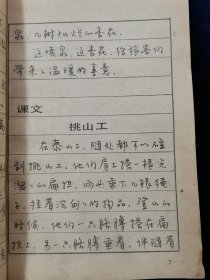 泉，几树灿烂的杏花。
这喷泉，这杏花，给旅客们
带来了温暖的春意。
课文
挑山工
在泰山上，随处都可以碰
到挑山工，他们肩上搭一根光
溜溜的扁担，两头垂下几根绳
子，挂着沉甸甸的物品。登山的
时候，他们一只胳膊搭在扁
担上，另一只胳膊垂着，伴随着
7